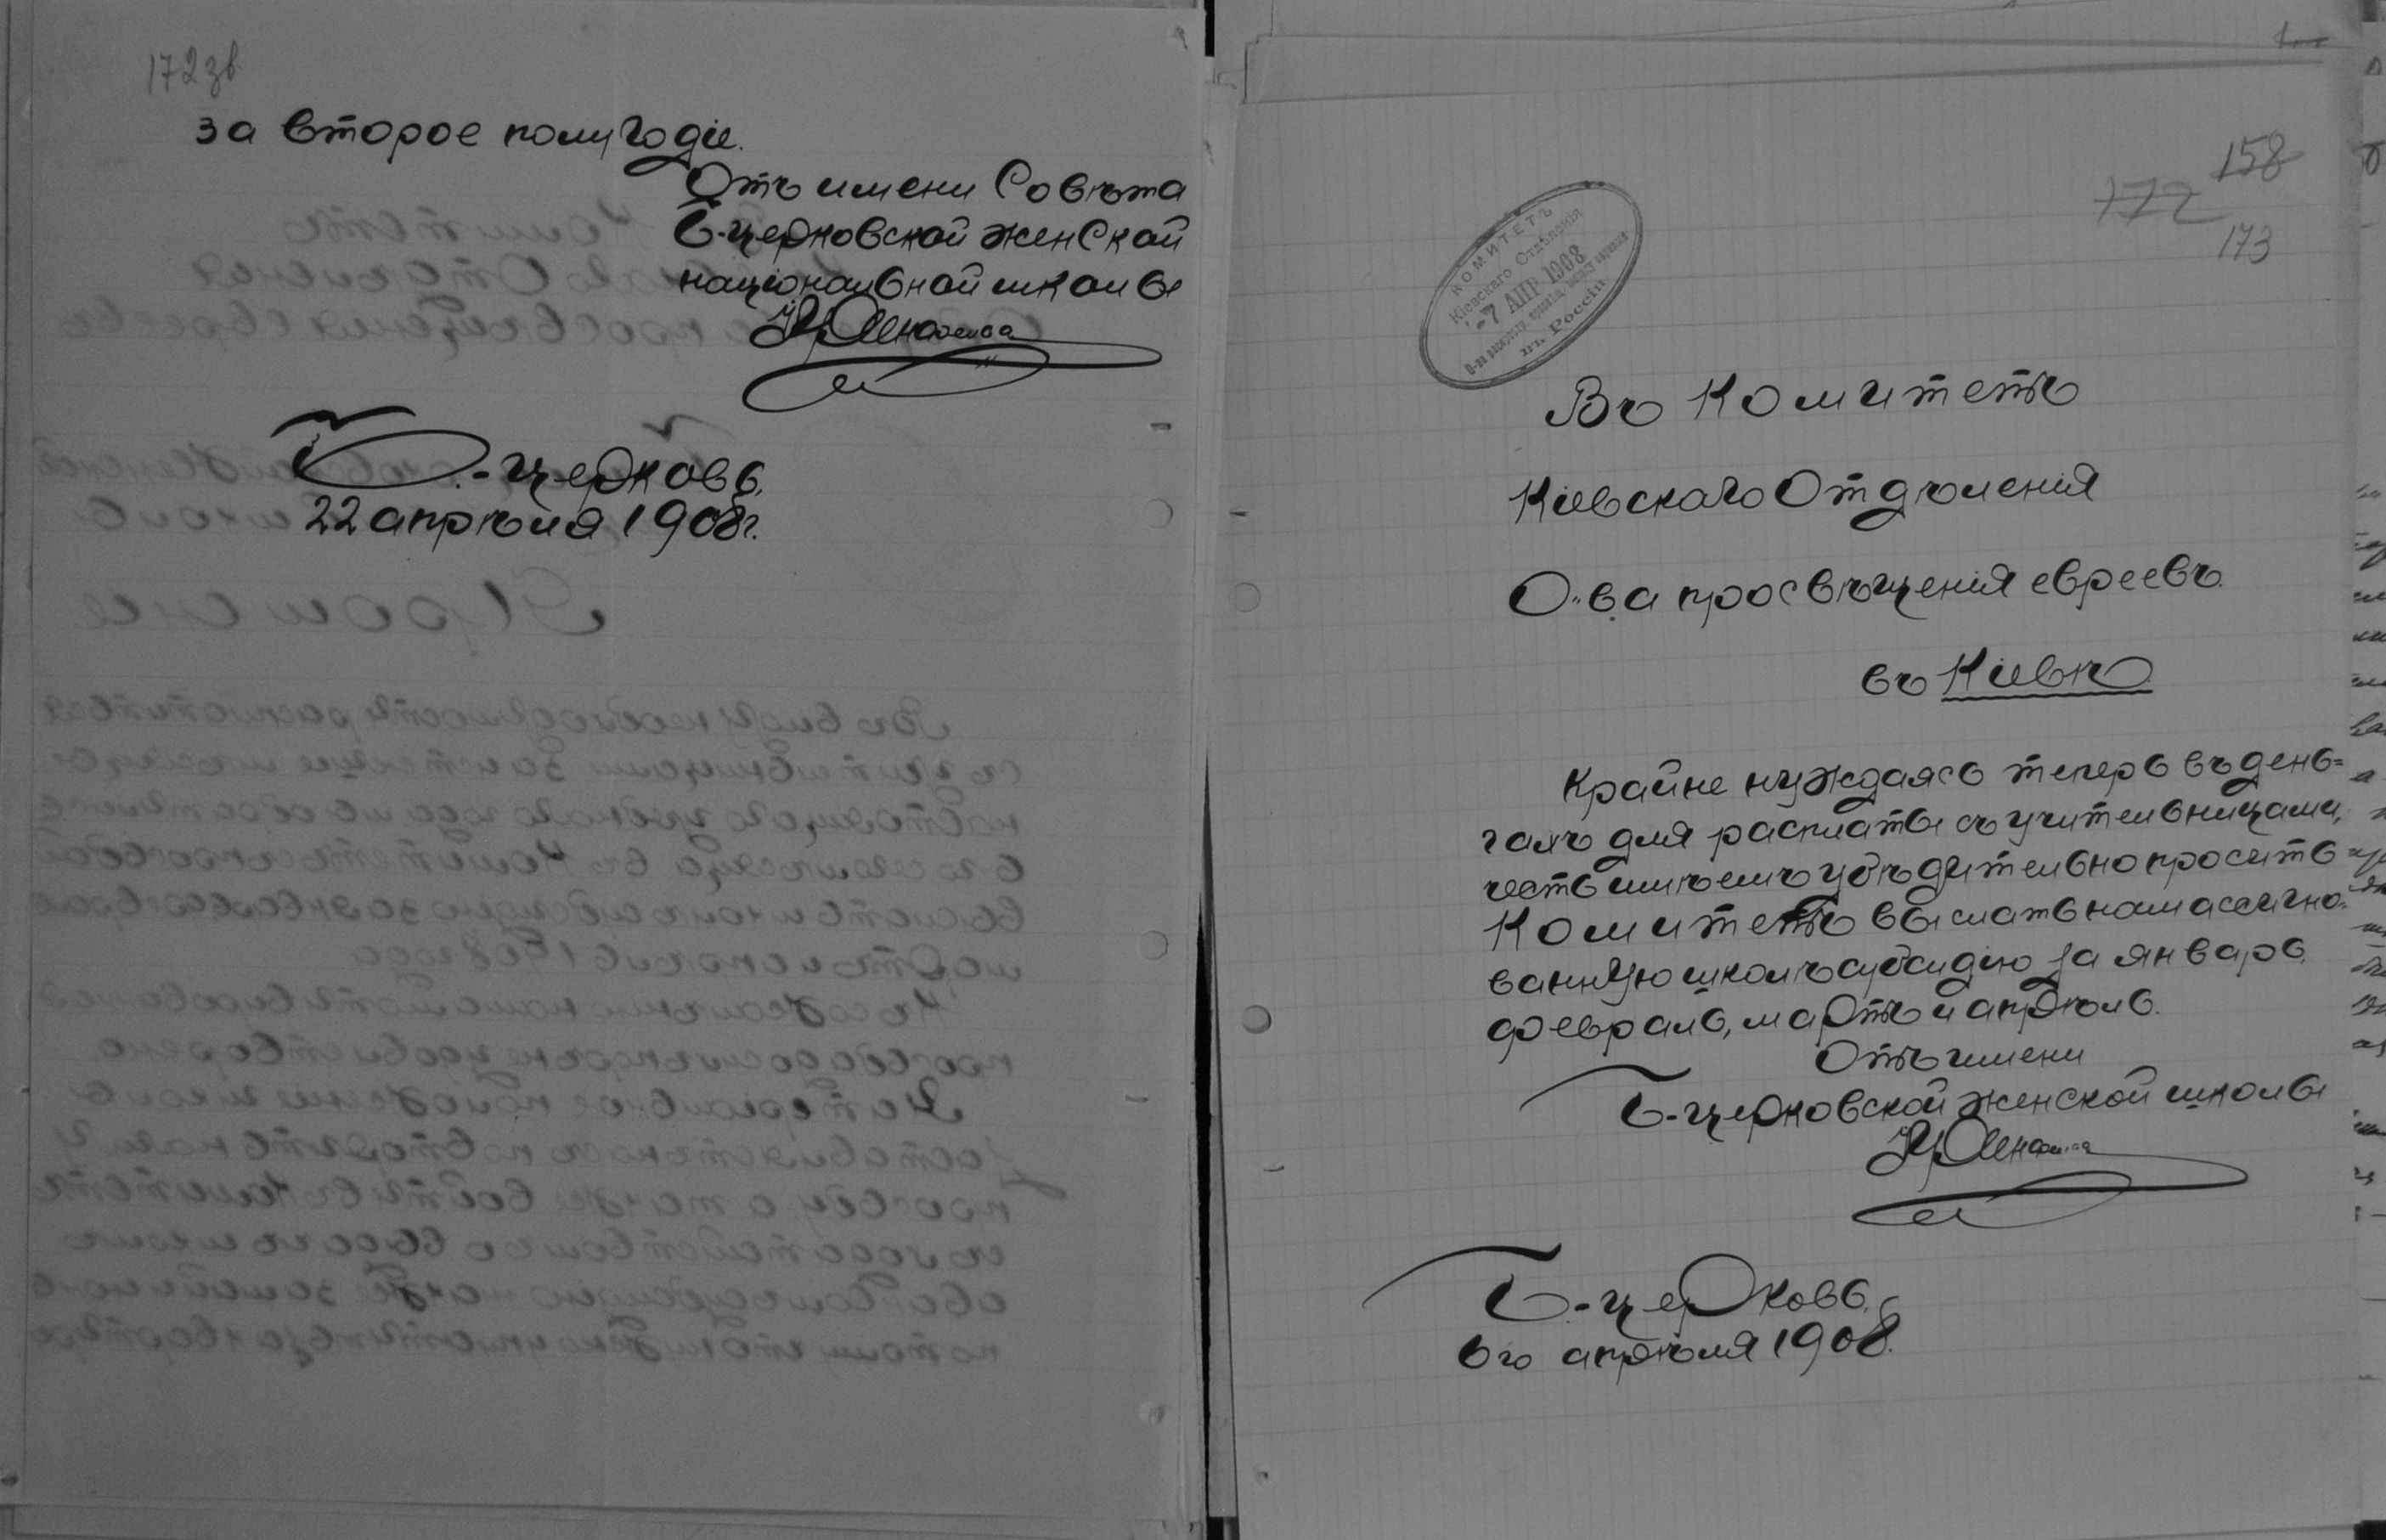 172 зв.
за второе полугодіе.
Отъ имени Совѣта
Б.-церковской женской
національной школы
Б.-Церковь.
22 апрѣля 1908 г.
158
172
173
КОМИТЕТЪ
Кіевскаго Отдѣленія
-7 АПР 1908
въ Россіи
Въ Комитетъ
Кіевскаго Отдѣленія
О-ва просвѣщенія евреевъ.
въ Кіевѣ
Крайне нуждаясь теперь въ день-
гахъ для расплаты съ учительницами,
честь имѣемъ убѣдительно просить
Комитетъ выслать нам ассигно-
ванную школѣ субсидію за январь,
февраль, мартъ и апрѣль.
Отъ имени
Б.-церковской женской школы
Б.-Церковь.
6го апрѣля 1908.